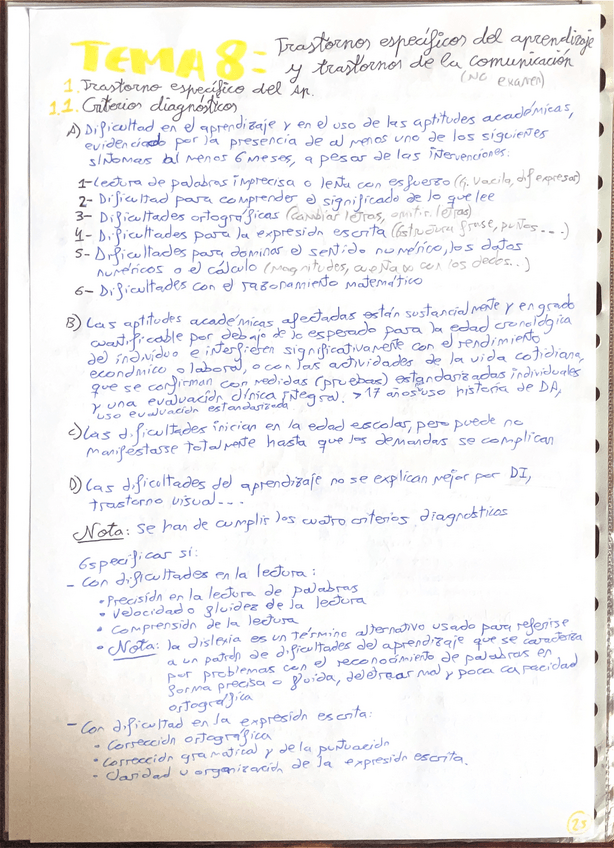 TEMA 8: Trastornos específicos del aprendizaje
y trastornos de la comunicación
(NO examen)
1. Trastorno específico del Ap.
1.1. Criterios diagnósticos
A) Dificultad en el aprendizaje y en el uso de las aptitudes académicas,
evidenciado por la presencia de al menos uno de los siguientes
síntomas al menos 6 meses, a pesar de las intervenciones:
1- Lectura de palabras imprecisa o lenta con esfuerzo (Ej. Vacila, dif expresar)
2- Dificultad para comprender el significado de lo que lee
3- Dificultades ortográficas (cambiar letras, omitir letras)
4- Dificultades para la expresión escrita (Estructura frase, puntos....)
5- Dificultades para dominar el sentido numérico, los datos
numéricos o el cálculo (magnitudes, cuenta con los dedos...)
6- Dificultades con el razonamiento matemático
B) Las aptitudes académicas afectadas están sustancialmente y en grado
cuantificable por debajo de lo esperado para la edad cronológica
del individuo e interfieren significativamente con el rendimiento
económico o laboral, o con las actividades de la vida cotidiana,
que se confirman con medidas (pruebas) estandarizadas individuales
y una evaluación clínica integral. >17 años uso historia de DA,
uso evaluación estandarizada
C) Las dificultades inician en la edad escolar, pero puede no
manifestasse totalmente hasta que las demandas se complican
D) Las dificultades del aprendizaje no se explican mejor por DI,
trastorno visual...
Nota: Se han de cumplir los cuatro criterios diagnósticos
Especificar si:
- Con dificultades en la lectura:
• Precisión en la lectura de palabras
• Velocidad o fluidez de la lectura
• Comprensión de la lectura
• Nota: la dislexia es un término alternativo usado para referirse
a un patrón de dificultades del aprendizaje que se caracteriza
por problemas con el reconocimiento de palabras en
forma precisa o fluida, deletrear mal y poca capacidad
ortográfica
- Con dificultad en la expresión escrita:
• Corrección ortográfica
• Corrección gramatical y de la puntuación
• Claridad u organización de la expresión escrita.
25